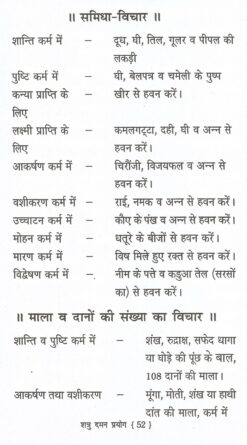 ॥ समिधा-विचार ॥
शान्ति कर्म में – दूध, घी, तिल, गूलर व पीपल की
लकड़ी
पुष्टि कर्म में – घी, बेलपत्र व चमेली के पुष्प
कन्या प्राप्ति के – खीर से हवन करें।
लिए
लक्ष्मी प्राप्ति के – कमलगट्टा, दही, घी व अन्न से
लिए हवन करें।
आकर्षण कर्म में – चिरौंजी, विजयफल व अन्न से
हवन करें।
वशीकरण कर्म में – राई, नमक व अन्न से हवन करें।
उच्चाटन कर्म में – कौए के पंख व अन्न से हवन करें।
मोहन कर्म में – धतूरे के बीजों से हवन करें।
मारण कर्म में – विष मिले हुए रक्त से हवन करें।
विद्वेषण कर्म में – नीम के पत्ते व कडुआ तेल (सरसों
का) से हवन करें।
॥ माला व दानों की संख्या का विचार ॥
शान्ति व पुष्टि कर्म में – शंख, रुद्राक्ष, सफेद धागा
या घोड़े की पूंछ के बाल,
108 दानों की माला।
आकर्षण तथा वशीकरण – मूंगा, मोती, शंख या हाथी
दांत की माला, कर्म में
शत्रु दमन प्रयोग { 52 }